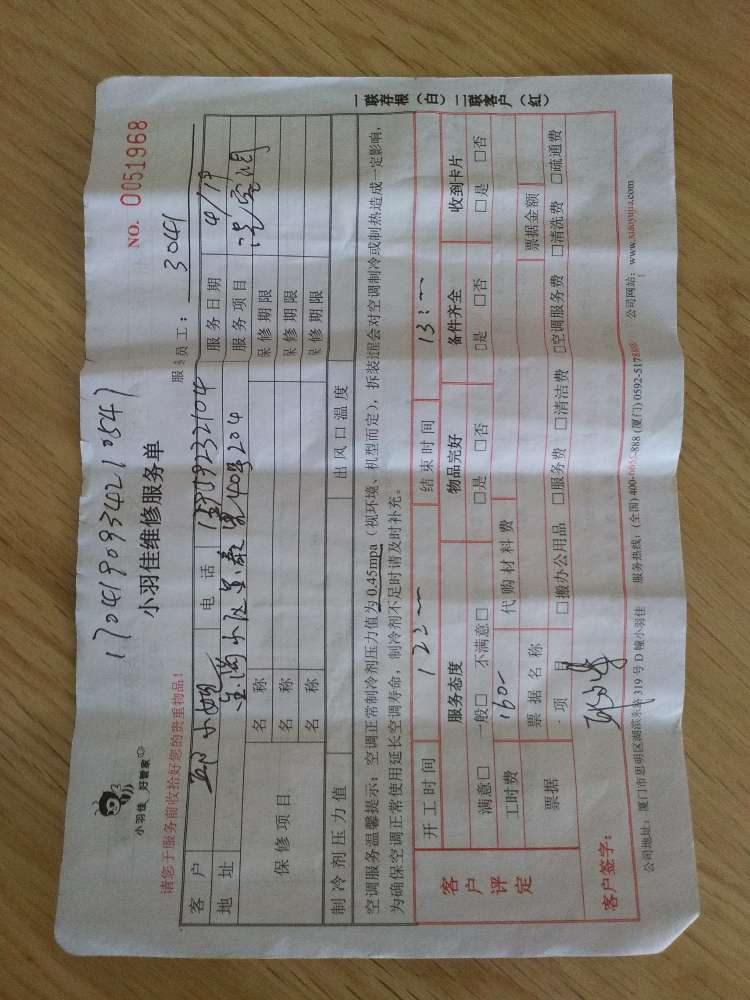 17041909342108547
小羽佳维修服务单
NO. 0051968
小羽佳 好管家
请您于服务前收拾好您的贵重物品！
服务员工： 3041
客户 小姐 电话 服务日期 4/19
地址 小区 40号204 服务项目
保修项目 名称 保修期限
名称 保修期限
名称 保修期限
制冷剂压力值 出风口温度
空调服务温馨提示：空调正常制冷剂压力值为0.45mpa（视环境、机型而定），拆装过程会对空调制冷或制热造成一定影响，
为确保空调正常使用延长空调寿命，制冷剂不足时请及时补充。
开工时间 结束时间 13:
客户评定 服务态度 物品完好 备件齐全 收到卡片
满意□ 一般□ 不满意□ □是 □否 □是 □否 □是 □否
工时费 160- 代购材料费
票据 票据名称 票据金额
项目 □搬办公用品 □服务费 □清洁费 □空调服务费 □清洗费 □疏通费
客户签字：
公司地址：厦门市思明区湖滨东路319号D幢小羽佳 服务热线：(全国)400-0655-888 (厦门)0592-517 公司网站：www.xiaoyujia.com
一联存根（白）二联客户（红）